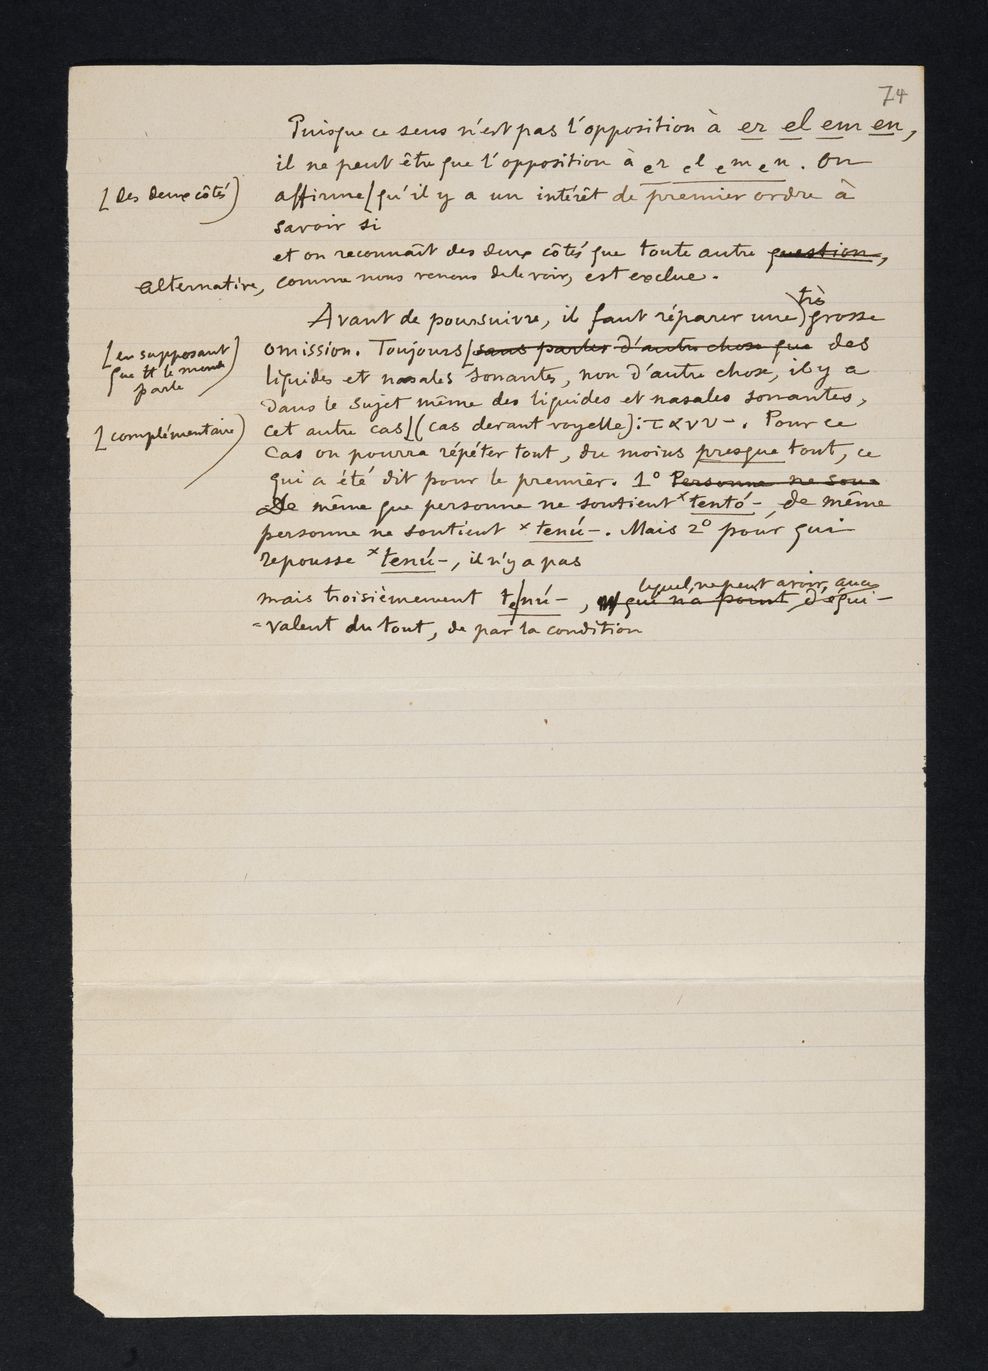 74
Puisque ce sens n'est pas l'opposition à er el em en,
il ne peut être que l'opposition à er el em en. On
[des deux côtés)
affirme [qu'il y a un intérêt de premier ordre à
savoir si
et on reconnaît des deux côtés que toute autre question,
alternative, comme nous venons de le voir, est exclue.
Avant de poursuivre, il faut réparer une très grosse
[en supposant
que tt le monde
parle
omission. Toujours [sans parler d'autre chose que des
liquides et nasales sonantes, non d'autre chose, il y a
dans le sujet même des liquides et nasales sonantes,
[complémentaire)
cet autre cas [(cas devant voyelle): τανυ-. Pour ce
cas on pourra répéter tout, du moins presque tout, ce
qui a été dit pour le premier. 1° Personne ne sou
De même que personne ne soutient ˣtentó-, de même
personne ne soutient ˣtenú-. Mais 2° pour qui
repousse ˣtenú-, il n'y a pas
lequel ne peut avoir aucun
mais troisièmement tₑnú-, qui n'a point d'équi-
-valent du tout, de par la condition